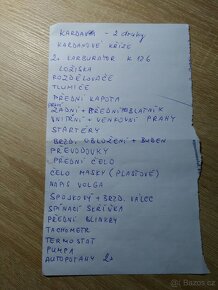 KARDAN - 2 druhy
KARDANOVÉ KŘÍŽE
2. KARBURÁTOR K 126
LOŽISKA
ROZDĚLOVAČE
TLUMIČE
PŘEDNÍ KAPOTA
ZADNÍ + PŘEDNÍ BLATNÍK
VNITŘNÍ + VENKOVNÍ PRAHY
STARTÉRY
BRZD. OBLOŽENÍ + BUBEN
PŘEVODOVKY
PŘEDNÍ ČELO
ČELO MASKY (PLASTOVÉ)
NÁPIS VOLGA
SPOJKOVÝ + BRZD. VÁLEC
SPÍNACÍ SKŘÍŇKA
PŘEDNÍ BLINKRY
TACHOMETR
TERMOSTAT
PUMPA
AUTOPOTAHY